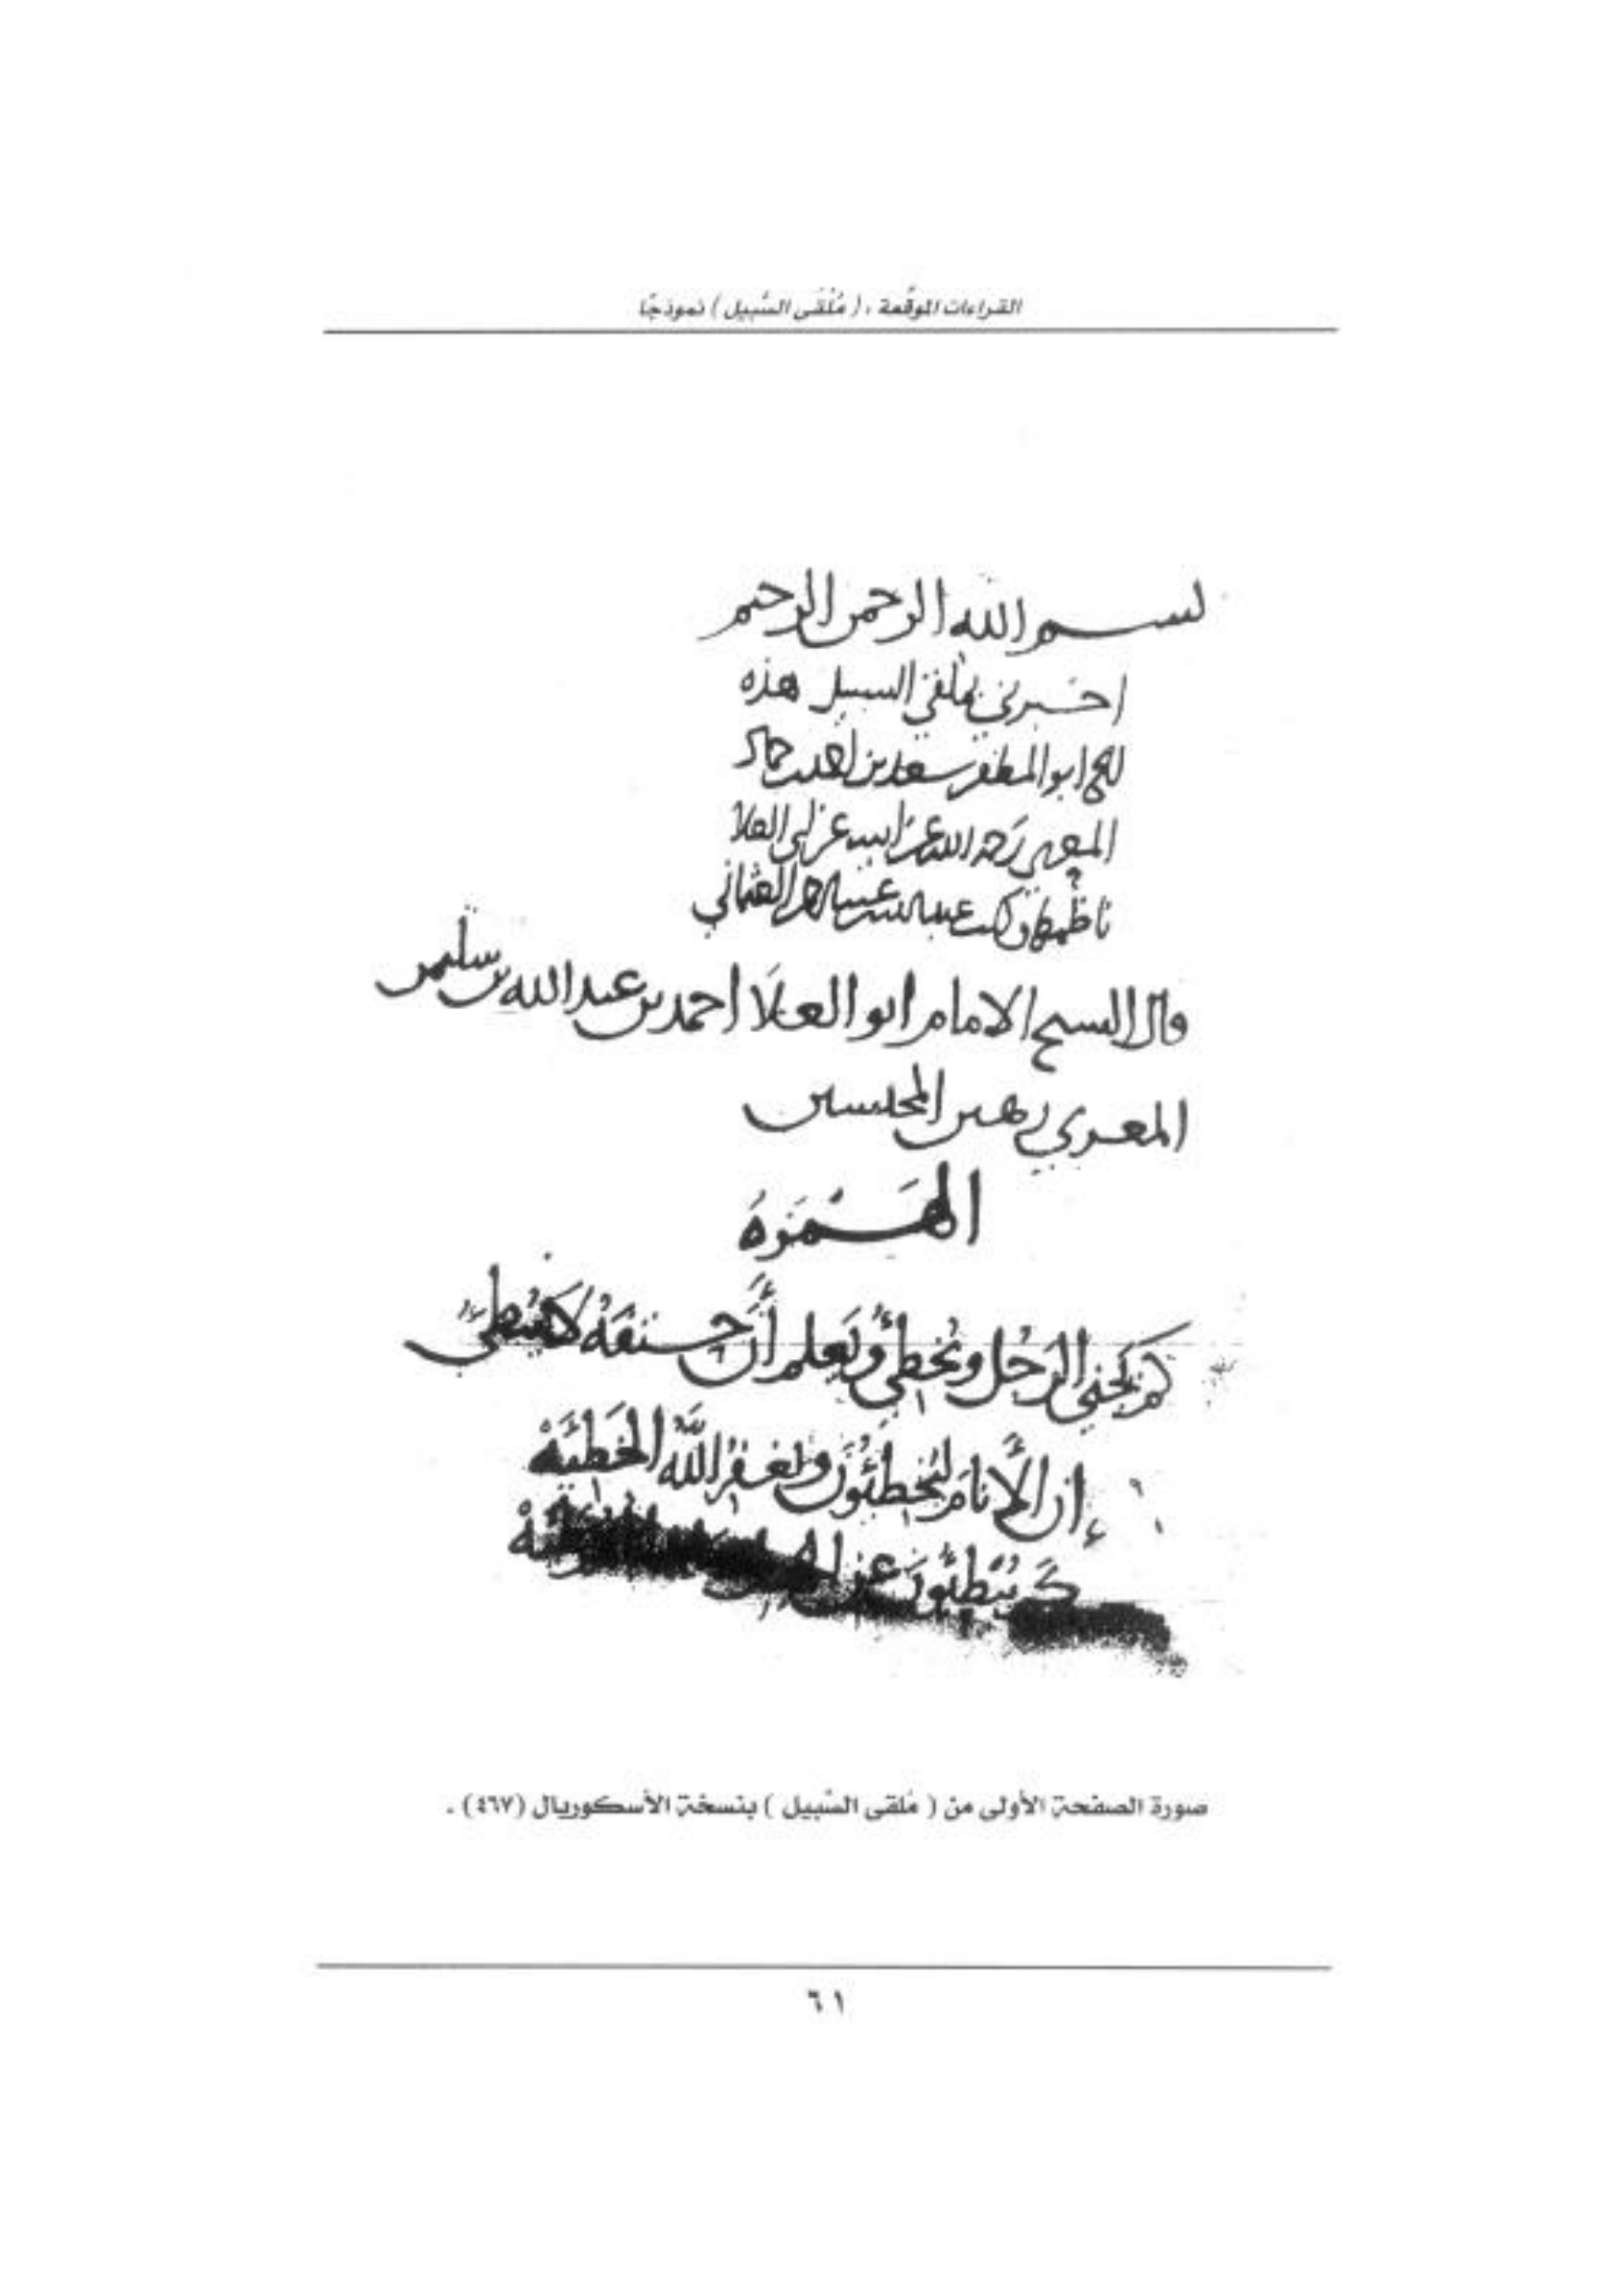 القراءات الموقَّعة ، ( مُلْقَى السَّبيل ) نموذجًا
بسم الله الرحمن الرحيم
اخبرني بملقي السبيل هذه
ابو المظفر سعد بن
المعري رحمه الله عن ابيه عن ابي العلا
ناظمها وكتب العثماني
قال الشيخ الامام ابو العلا احمد بن عبد الله بن سليمن
المعري رهين المحبسين
الهَمْزَة
كم يجني الرَجُل ويُخطِئُ ويَعلم أنَّ حتفَهُ لا يُبطِئُ
إن الأنامَ ليُخطِئُونَ ويَغفِرُ اللَّهُ الخَطِيَّهْ
كم يُبْطِئُونَ عن
صورة الصفحة الأولى من ( مُلقى السَّبيل ) بنسخة الأسكوريال (٤٦٧) .
٦١